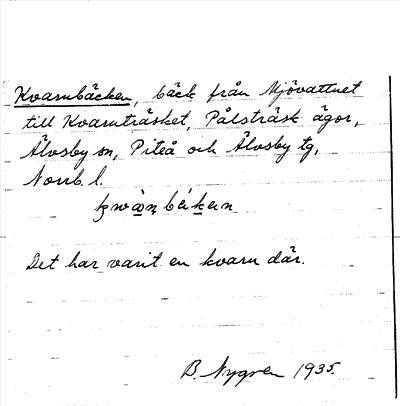 Kvarnbäcken, bäck från Mjövattnet
till Kvarnträsket, Pålsträsk ägor,
Älvsby sn, Piteå och Älvsby tg,
Norrb. l.
Det har varit en kvarn där.
B. Nygren 1935